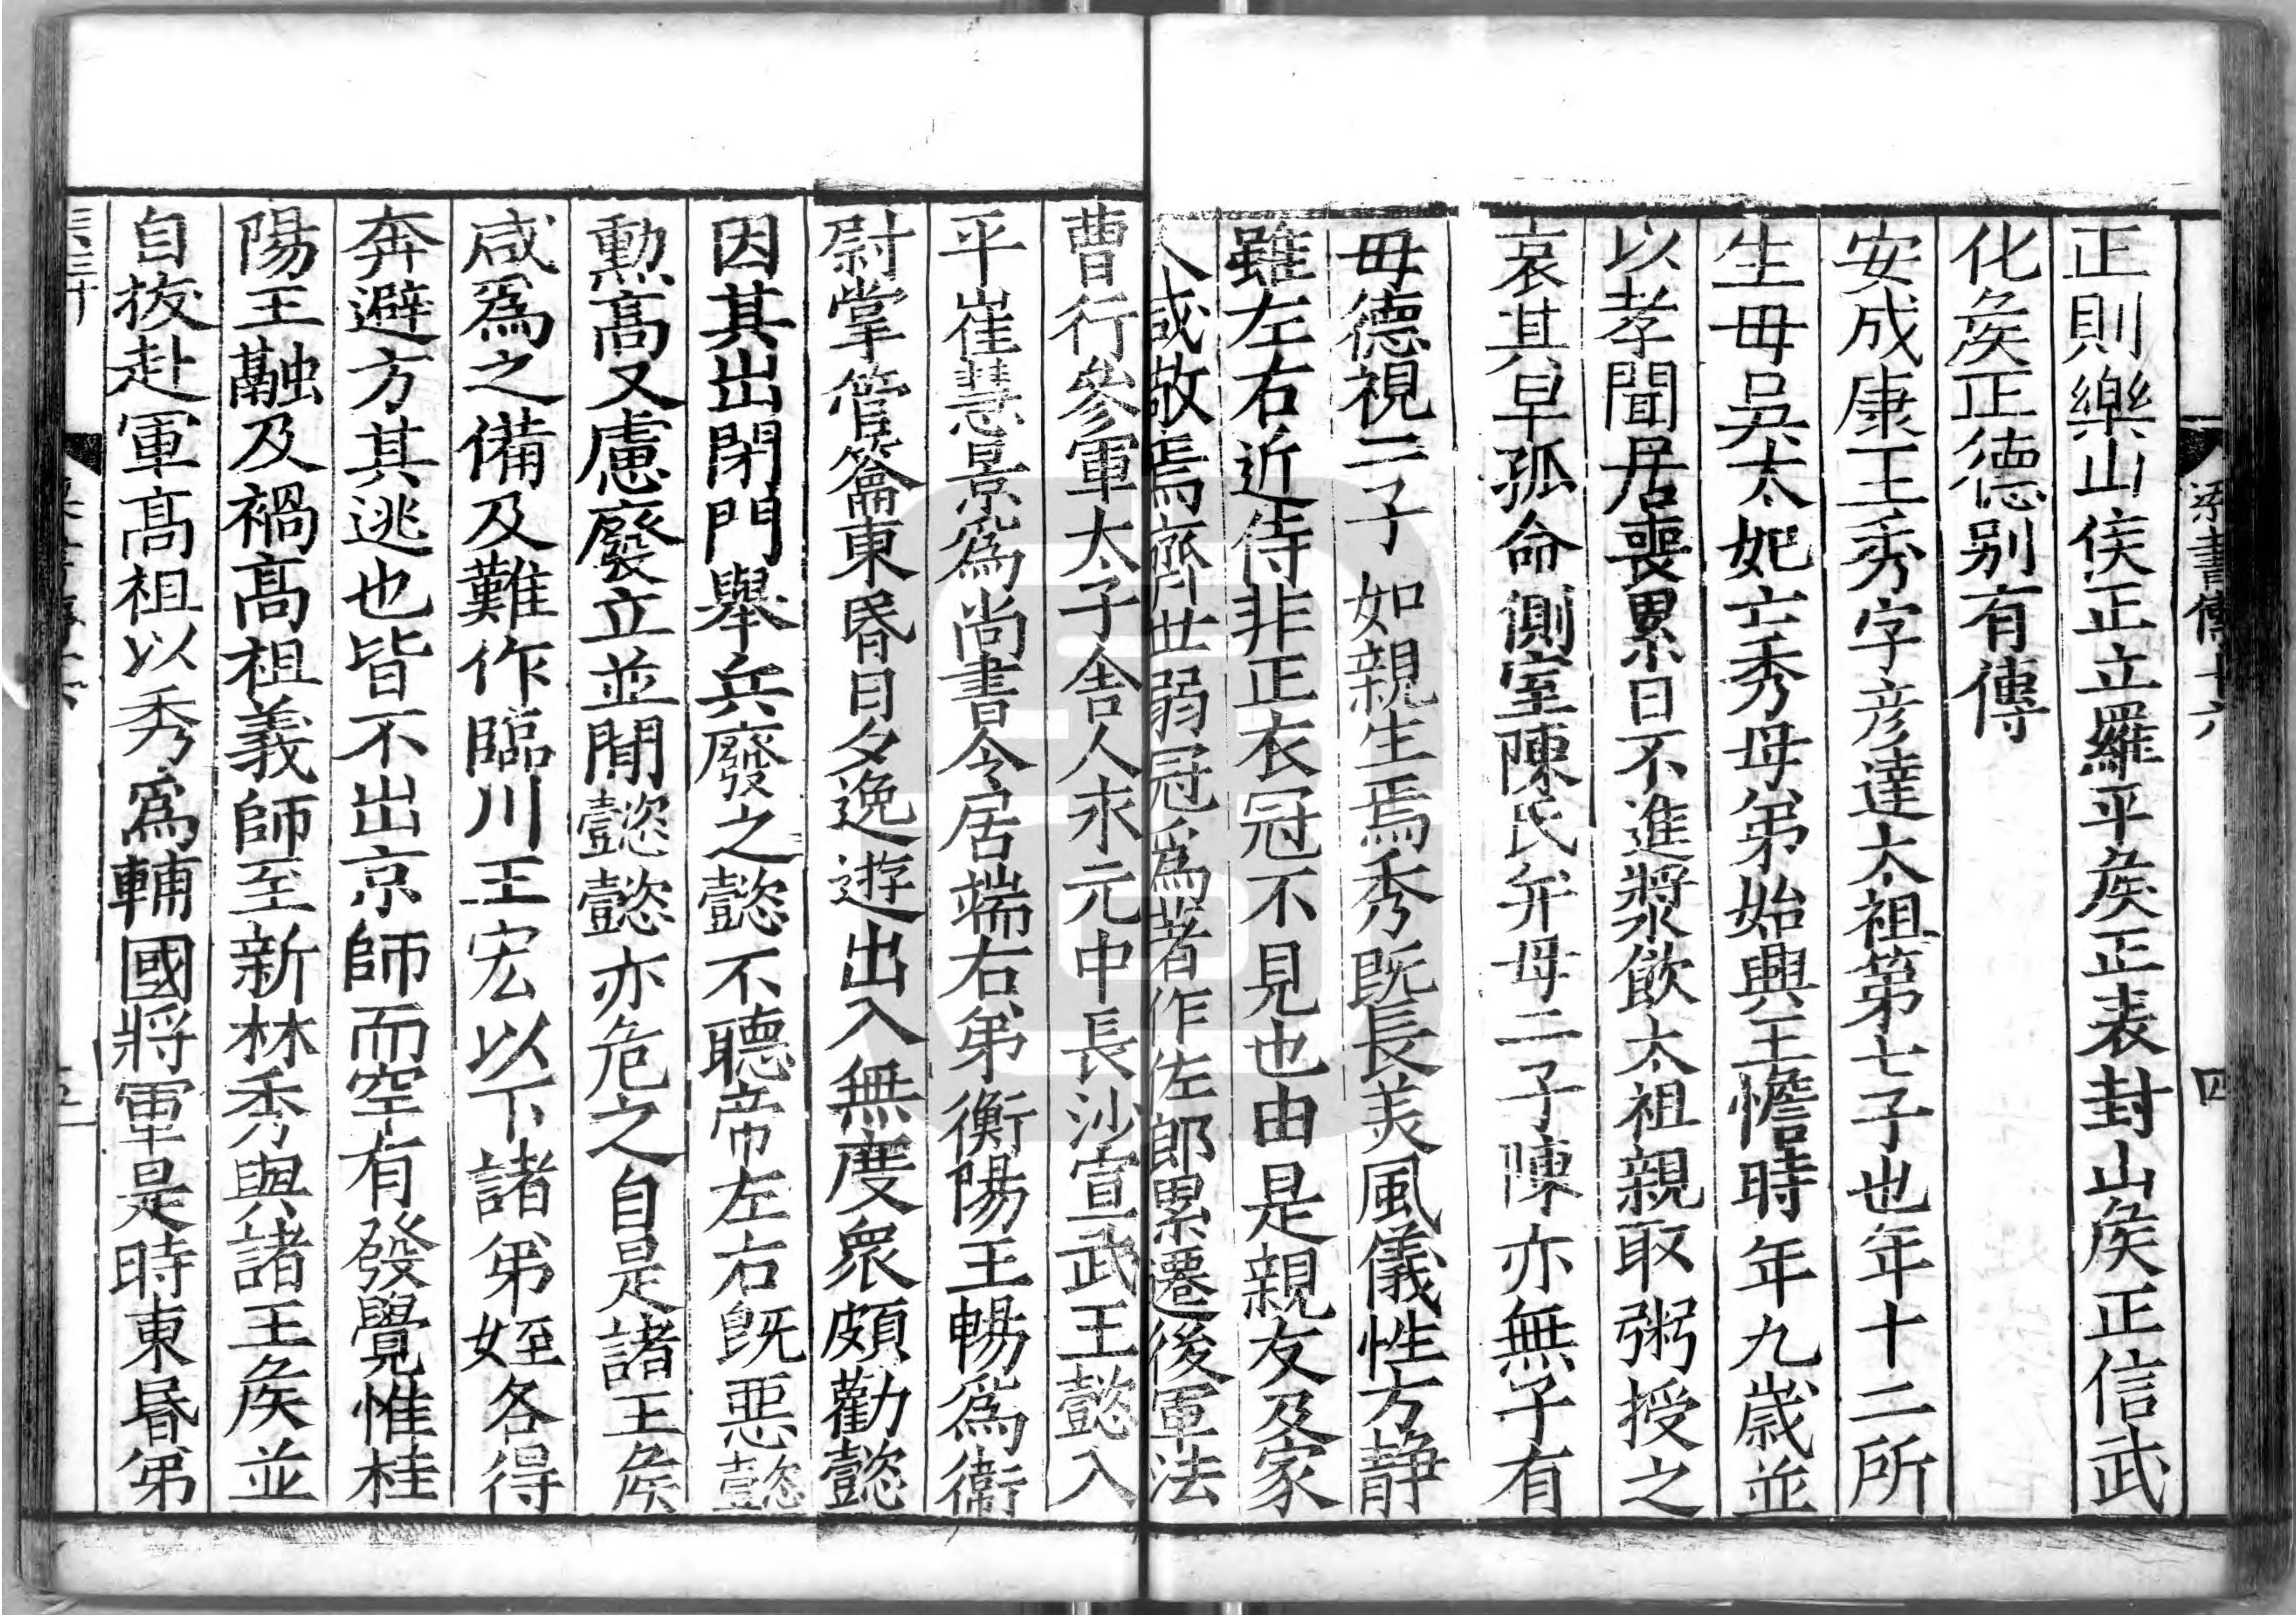 梁書傳十六
四
正則樂山侯正立羅平矦正表封山矦正信武
化矦正德別有傳
安成康王秀字彦達太祖第七子也年十二所
生母吳太妃亡秀母弟始興王憺時年九歲並
以孝聞居喪累日不進漿飲太祖親取粥授之
哀其早孤命側室陳氏并母二子陳亦無子有
母德視二子如親生焉秀既長美風儀性方静
雖左右近侍非正衣冠不見也由是親友及家
人咸敬焉齊世弱冠爲著作佐郎累遷後軍法
曹行參軍太子舎人求元中長沙宣武王懿入
平崔慧景爲尚書令居端右弟衡陽王暢爲衛
尉掌管籥東昬日夕逸遊出入無度衆頗勸懿
因其出閉門舉兵廢之懿不聽帝左右既惡懿
勲高又慮廢立並間懿懿亦危之自是諸王矦
咸爲之備及難作臨川王宏以下諸弟姪各得
奔避方其逃也皆不出京師而罕有發覺惟桂
陽王融及禍高祖義師至新林秀與諸王矦並
自拔赴軍高祖以秀爲輔國將軍是時東昬弟